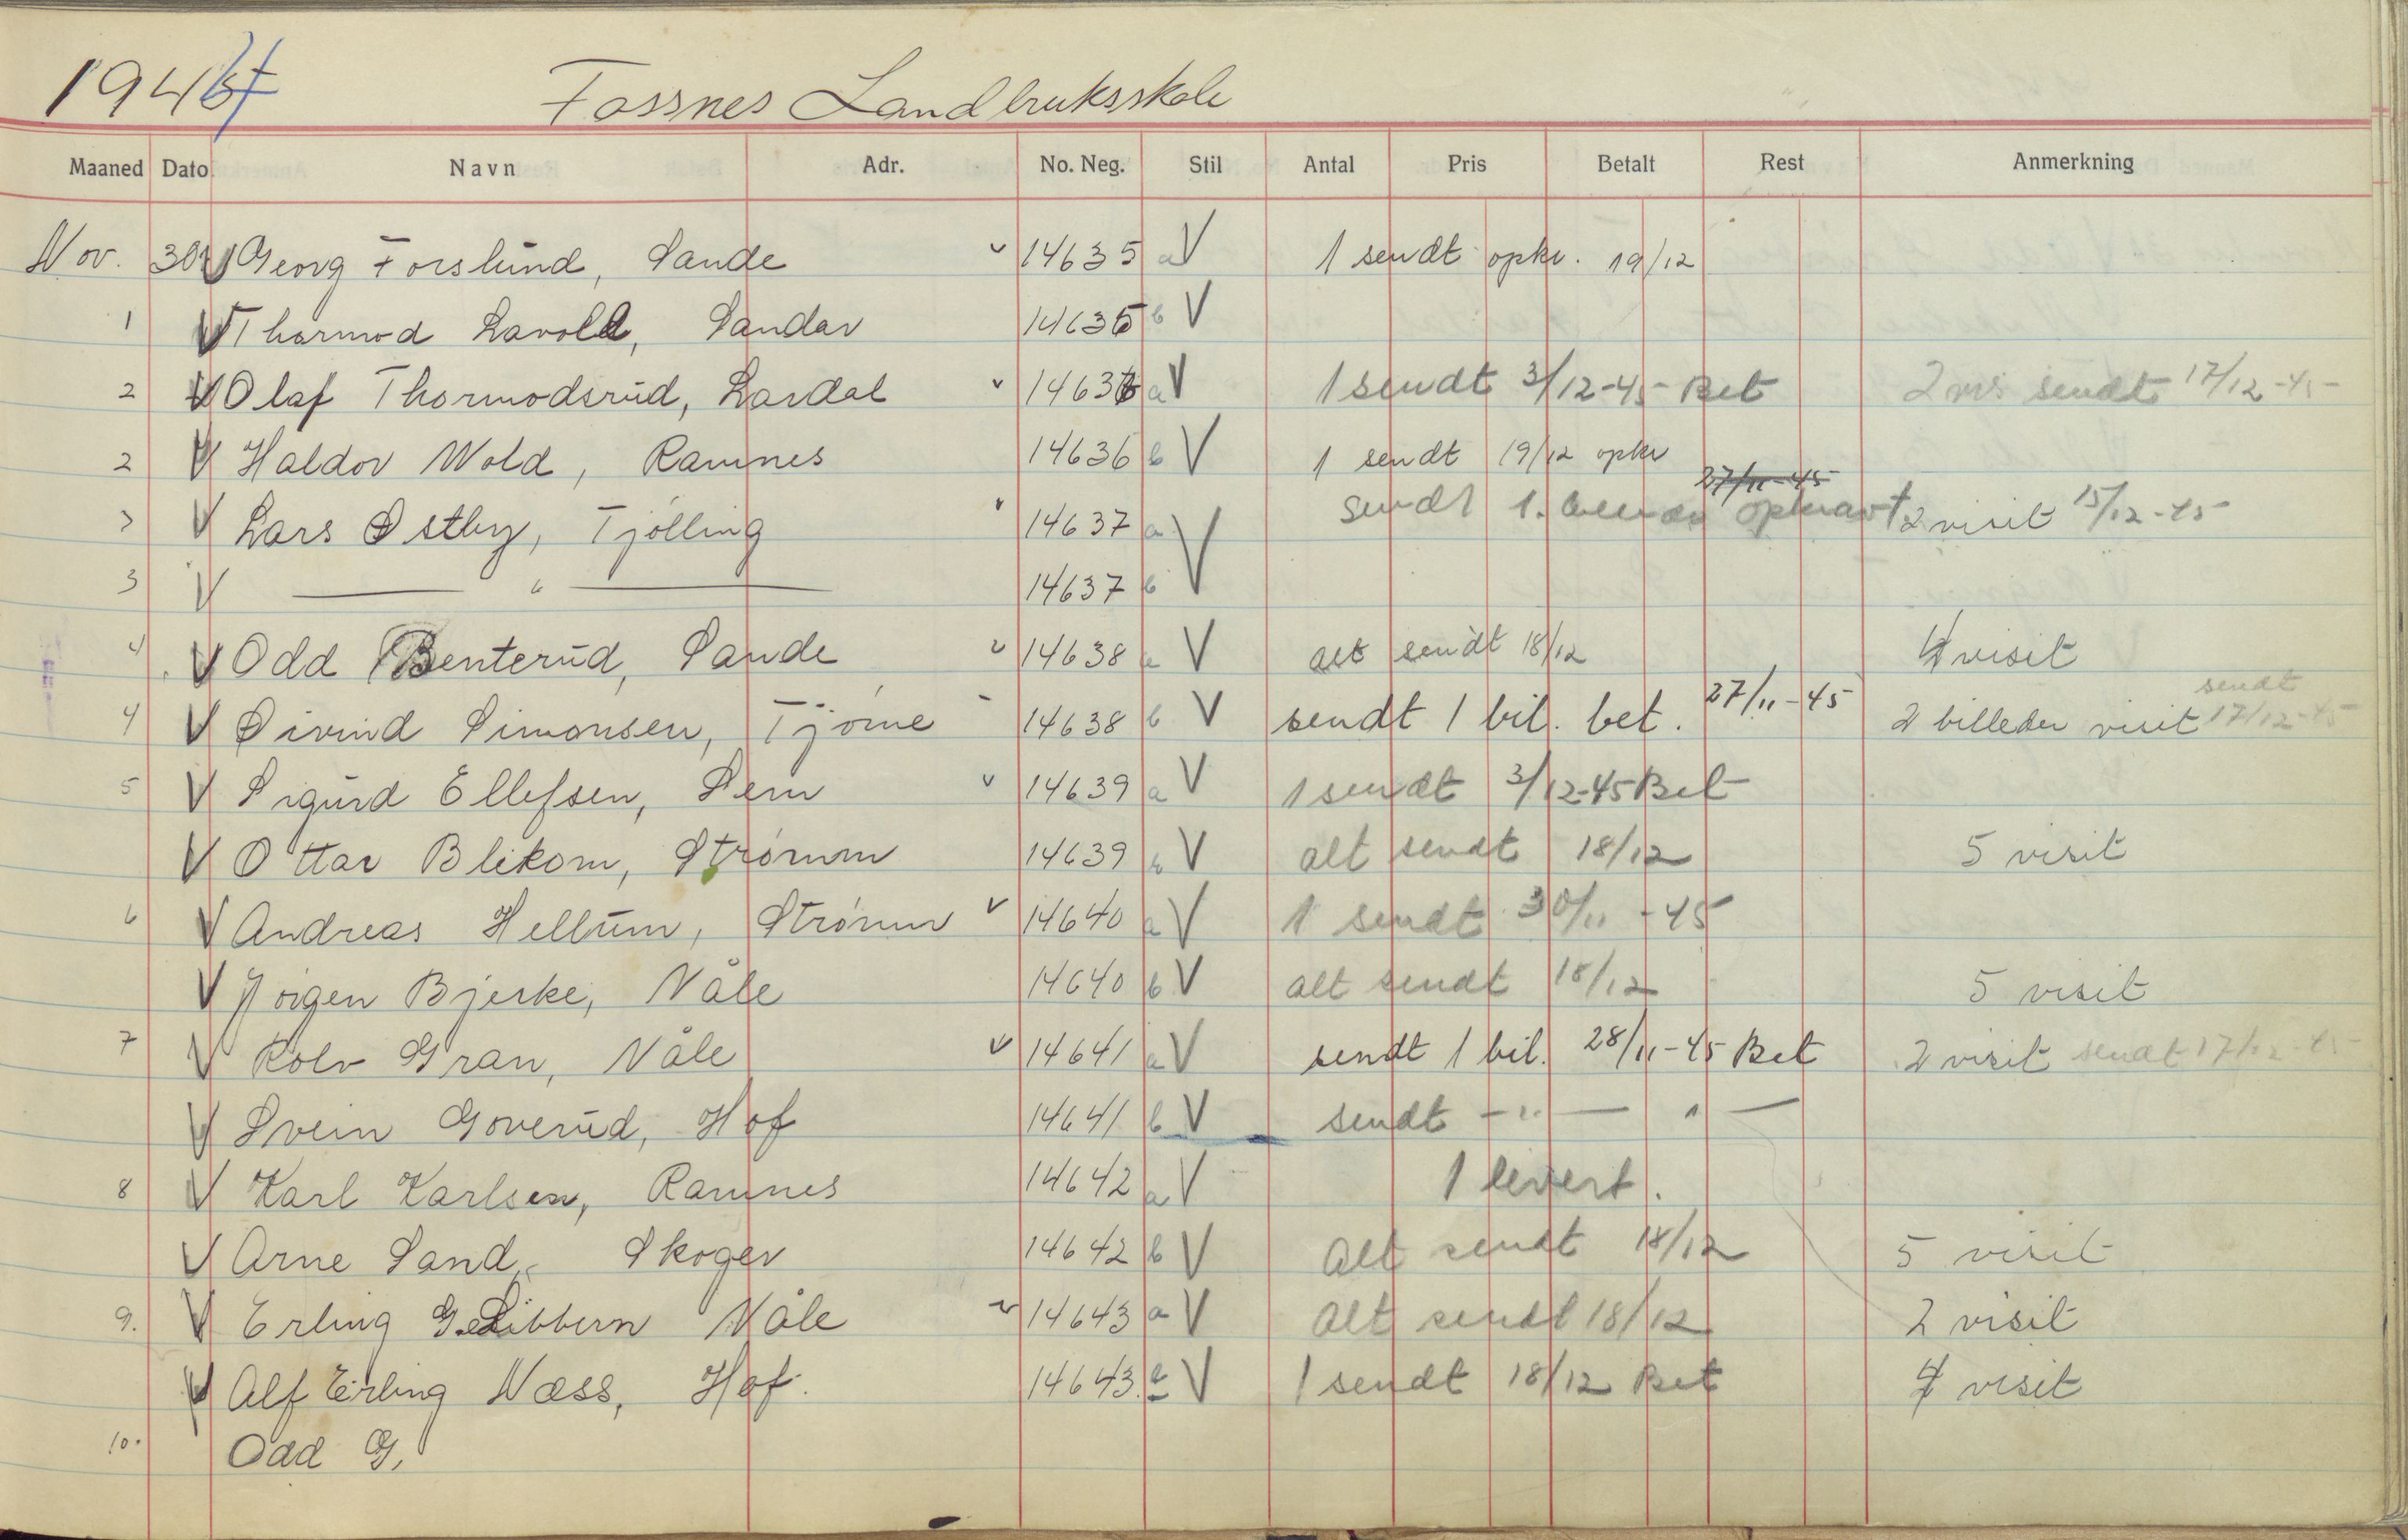 1945 Fossnes Landbruksskole
Maaned Dato Navn Adr. No. Neg. Stil Antal Pris Betalt Rest Anmerkning
Nov. 30 V Georg Forslund, Sande v 14635 a V 1 sendt opkr. 19/12
1 V Thormod Lavold, Sandar 14635 b V
2 V Olaf Thormodsrud, Lardal v 14636 a V 1 sendt 3/12-45 Bet 2 vis sendt 17/12-45
2 V Haldor Wold, Ramnes 14636 b V 1 sendt 19/12 opkr
27/11-45
3 V Lars Østby, Tjölling v 14637 a V sendt 1. opkravt 2 visit 15/12-45
3 V — " — 14637 b
4 V Odd Benterud, Sande v 14638 a V alt sendt 18/12 4 visit
4 V Øivind Simonsen, Tjöme 14638 b V sendt 1 bil. bet. 27/11-45 2 billeder visit sendt 17/12-45
5 V Sigurd Ellefsen, Sem v 14639 a V 1 sendt 3/12-45 Bet
V Ottar Blikom, Strömm 14639 b V alt sendt 18/12 5 visit
6 V Andreas Hellum, Strömm v 14640 a V 1 sendt 30/11-45
V Jörgen Bjerke, Våle 14640 b V alt sendt 18/12 5 visit
7 V Rolv Gran, Våle v 14641 a V sendt 1 bil. 28/11-45 Bet 2 visit sendt 17/12-45
V Svein Goverud, Hof 14641 b V sendt — " — " —
8 V Karl Karlsen, Ramnes 14642 a V 1 levert.
V Arne Sand, Skoger 14642 b V Alt sendt 18/12 5 visit
9. V Erling Våle v 14643 a V Alt sendt 18/12 2 visit
V Alf Erling Næss, Hof. 14643 b V 1 sendt 18/12 Bet 4 visit
10. Odd G,